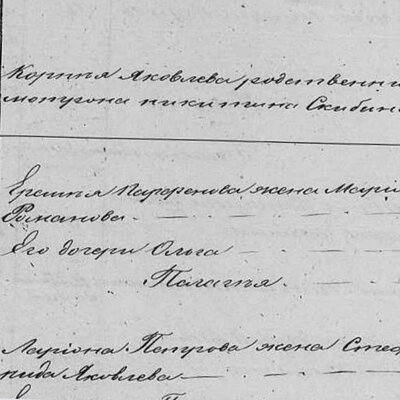 Корнія Яковлева родственни
Никитина Скибин
Еремія Парфенова жена Марі
Романова
Его дочери Ольга
Палагія
Ларіона Петрова жена Стеф
нида Яковлева